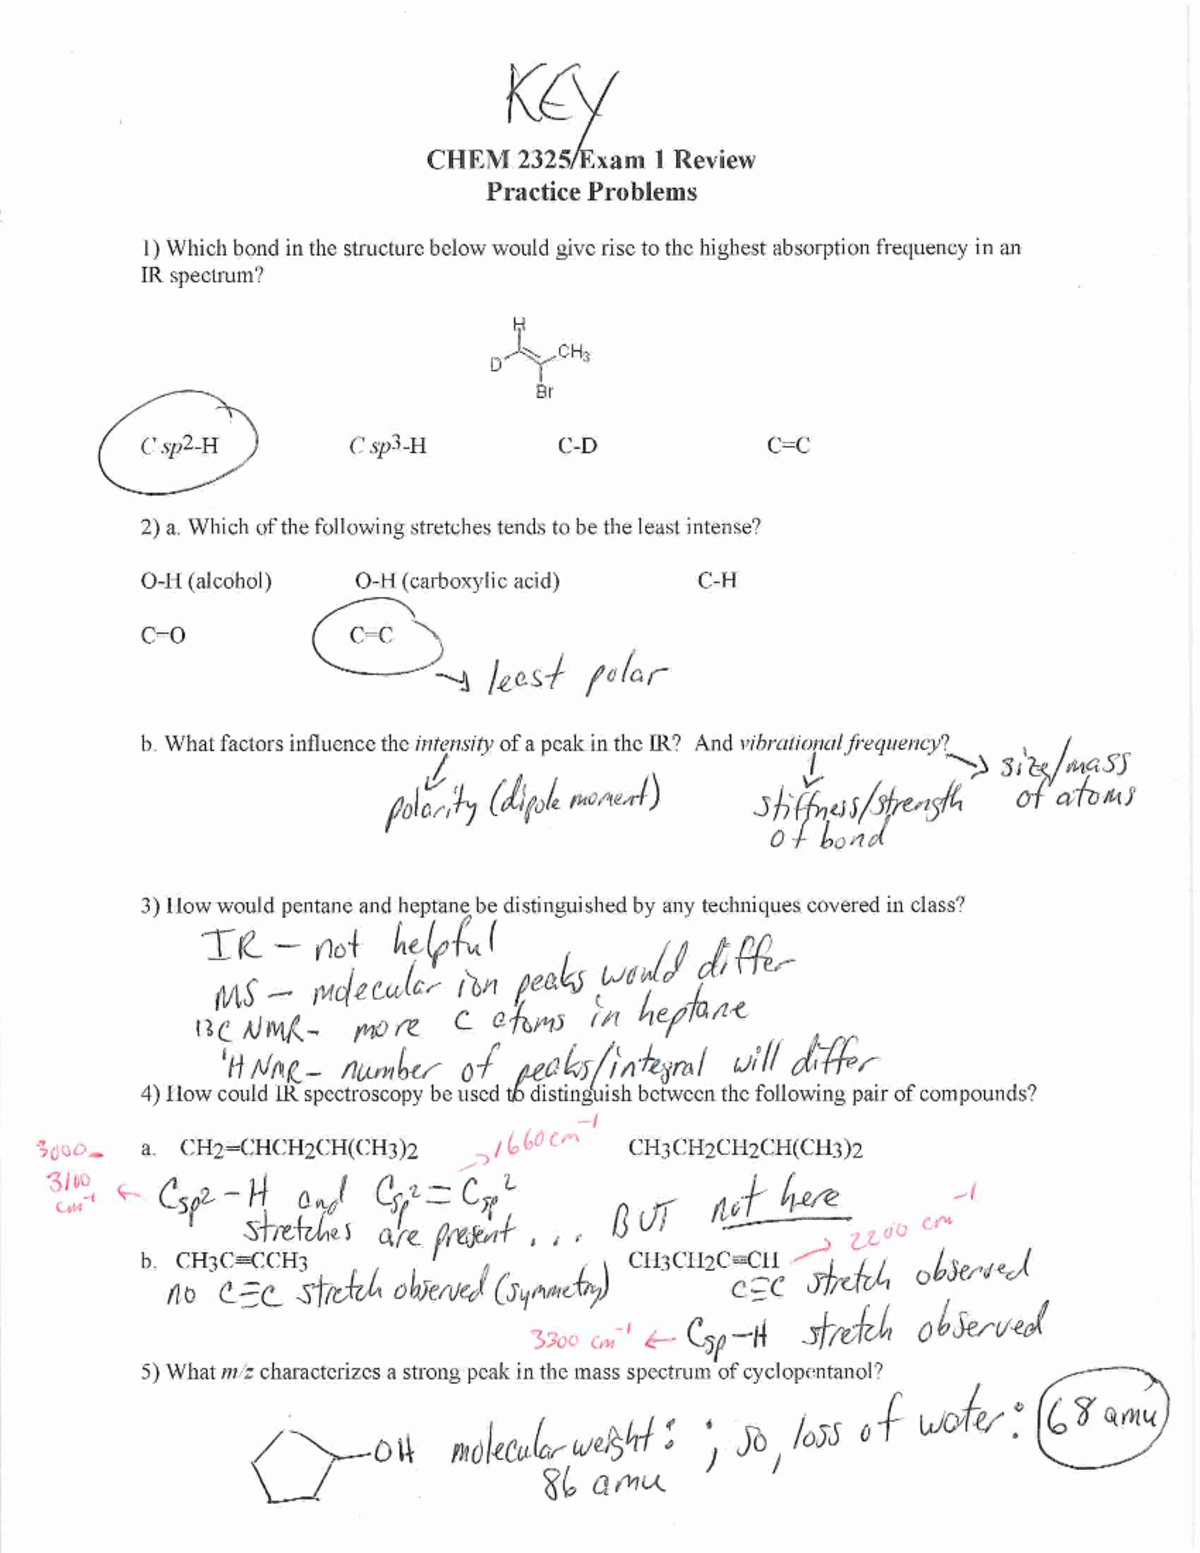 KEY
CHEM 2325/Exam 1 Review
Practice Problems
1) Which bond in the structure below would give rise to the highest absorption frequency in an
IR spectrum?
H
D CH3
Br
C sp2-H C sp3-H C-D C=C
2) a. Which of the following stretches tends to be the least intense?
O-H (alcohol) O-H (carboxylic acid) C-H
C=O C=C
→ least polar
b. What factors influence the intensity of a peak in the IR? And vibrational frequency?
→ size/mass
of atoms
polarity (dipole moment) stiffness/strength
of bond
3) How would pentane and heptane be distinguished by any techniques covered in class?
IR - not helpful
MS - molecular ion peaks would differ
13C NMR - more C atoms in heptane
1H NMR - number of peaks/integral will differ
4) How could IR spectroscopy be used to distinguish between the following pair of compounds?
3000- a. CH2=CHCH2CH(CH3)2 → 1660 cm-1 CH3CH2CH2CH(CH3)2
3100
cm-1 ← Csp2-H and Csp2=Csp2
stretches are present ... BUT not here
b. CH3C≡CCH3 CH3CH2C≡CH → 2200 cm-1
no C≡C stretch observed (symmetry) C≡C stretch observed
3300 cm-1 ← Csp-H stretch observed
5) What m/z characterizes a strong peak in the mass spectrum of cyclopentanol?
OH molecular weight: ; so, loss of water: 68 amu
86 amu